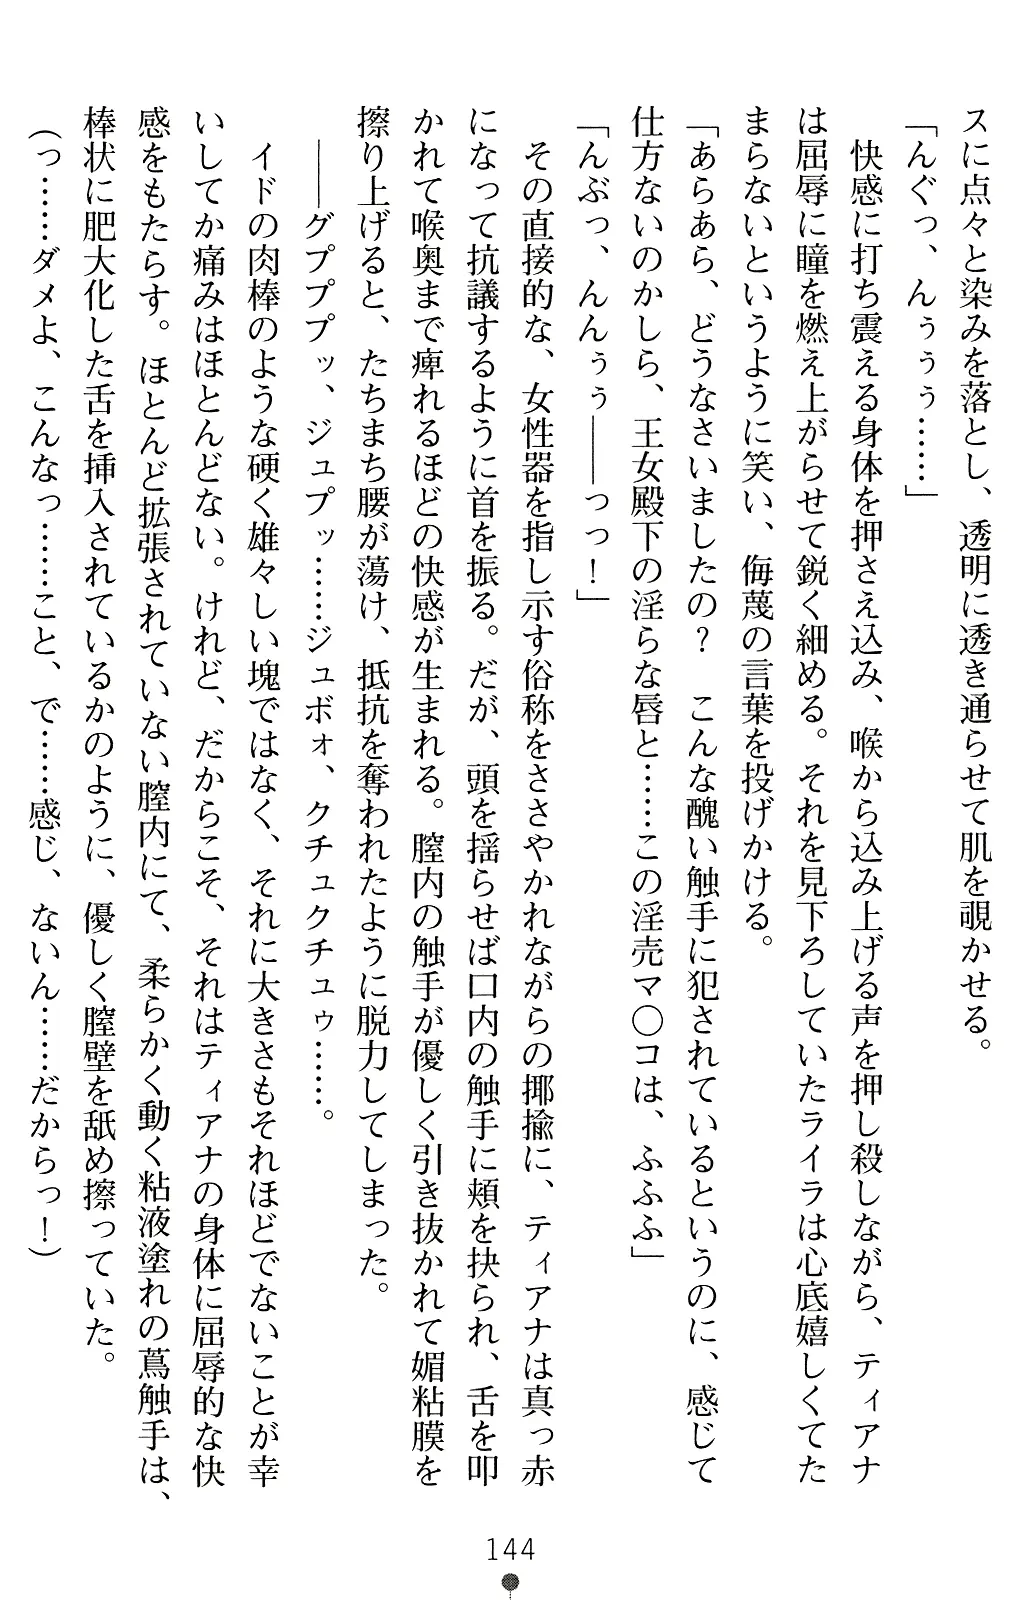 スに点々と染みを落とし、透明に透き通らせて肌を覗かせる。
「んぐっ、んぅぅぅ……」
快感に打ち震える身体を押さえ込み、喉から込み上げる声を押し殺しながら、ティアナ
は屈辱に瞳を燃え上がらせて鋭く細める。それを見下ろしていたライラは心底嬉しくてた
まらないというように笑い、侮蔑の言葉を投げかける。
「あらあら、どうなさいましたの？　こんな醜い触手に犯されているというのに、感じて
仕方ないのかしら、王女殿下の淫らな唇と……この淫売マ〇コは、ふふふ」
「んぶっ、んんぅぅ――っっ！」
その直接的な、女性器を指し示す俗称をささやかれながらの揶揄に、ティアナは真っ赤
になって抗議するように首を振る。だが、頭を揺らせば口内の触手に頬を抉られ、舌を叩
かれて喉奥まで痺れるほどの快感が生まれる。膣内の触手が優しく引き抜かれて媚粘膜を
擦り上げると、たちまち腰が蕩け、抵抗を奪われたように脱力してしまった。
――グププププッ、ジュプッ……ジュボォ、クチュクチュゥ……。
イドの肉棒のような硬く雄々しい塊ではなく、それに大きさもそれほどでないことが幸
いしてか痛みはほとんどない。けれど、だからこそ、それはティアナの身体に屈辱的な快
感をもたらす。ほとんど拡張されていない膣内にて、柔らかく動く粘液塗れの蔦触手は、
棒状に肥大化した舌を挿入されているかのように、優しく膣壁を舐め擦っていた。
（っ……ダメよ、こんなっ……こと、で……感じ、ないん……だからっ！）
144